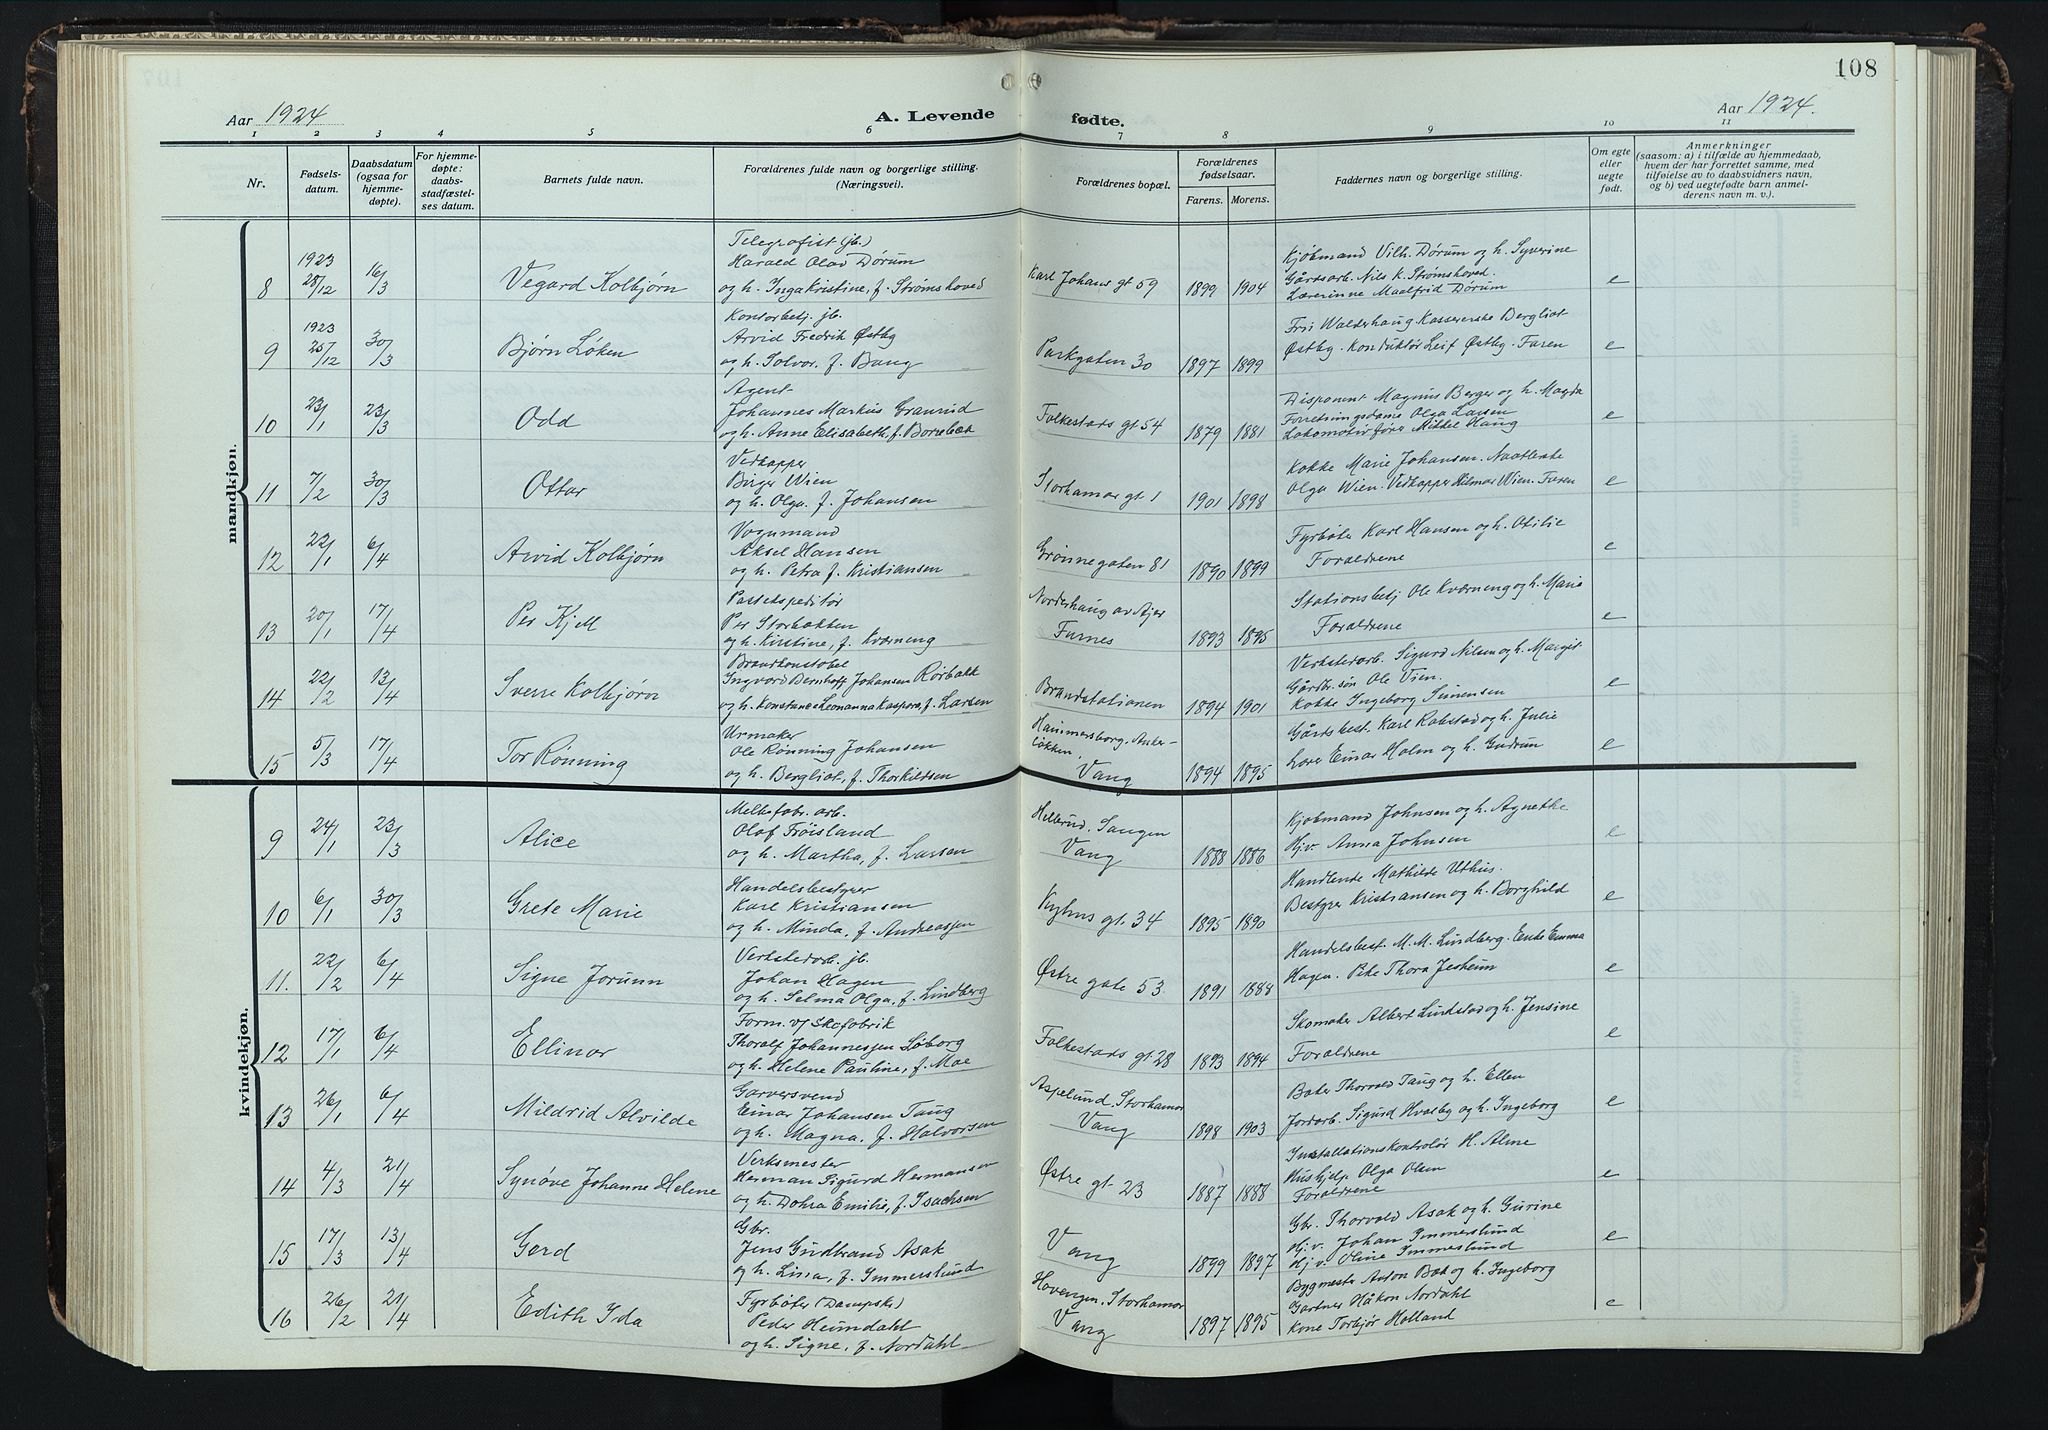 108
Aar 1924 A. Levende fødte. Aar 1924.
1 2 3 4 5 6 7 8 9 10 11
Nr. Fødsels-datum. Daabsdatum (ogsaa for hjemme-døpte). For hjemme-døpte: daabs-stadfæstel-ses datum. Barnets fulde navn. Forældrenes fulde navn og borgerlige stilling. (Næringsvei). Forældrenes bopæl. Forældrenes fødselsaar. Farens. Morens. Faddernes navn og borgerlige stilling. Om egte eller uegte født. Anmerkninger (saasom: a) i tilfælde av hjemmedaab, hvem der har forrettet samme, med tilføielse av to daabsvidners navn, og b) ved uegtefødte barn anmel-derens navn m. v.).
mandkjøn.
Telegrafist (jb.)
1923 Harald Olav Dørum Kjøbmand Vilh. Dørum og h. Syverine
8 28/12 16/3 Vegard Kolbjørn og h. Inga Kristine, f. Strømshoved Karl Johans gt 59 1899 1904 Gårdsarb. Nils K. Strømshoved. e
Lærerinne Maalfrid Dørum
Kontorbetj. jb.
1923 Arvid Fredrik Østby Fru Walderhaug. Kassererske Bergliot
9 25/12 30/3 Bjørn Løken og h. Solvor. f. Bang Parkgaten 30 1897 1899 Østby. Konduktør Leif Østby. Faren e
Agent
Johannes Markus Granrud Disponent Magnus Berger og h. Magda
10 23/1 23/3 Odd og h. Anne Elisabeth, f. Borrebæk Folkestads gt 54 1879 1881 Forretningsdame Olga Larsen e
Lokomotivfører Mikkel Haug
Vedkapper
Birger Wien Kokke Marie Johansen.
11 7/2 30/3 Ottar og h. Olga. f. Johansen Storhamar gt 1 1901 1898 Olga Wien. Vedkapper Hilmar Wien. Faren e
Vognmand
Aksel Hansen Fyrbøter Karl Hansen og h. Otilie
12 22/1 6/4 Arvid Kolbjørn og h. Petra f. Kristiansen Grønnegaten 81 1890 1899 Forældrene e
Pakkekspeditør
Per Storbækken Norderhaug av Ajer Stationsbetj Ole Kværneng og h. Marie
13 20/1 17/4 Per Kjell og h. Kirstine, f. Kværneng Furnes 1893 1895 Forældrene e
Brandkonstabel
Ingvard Bernhoff Johansen Rørbakk Verkstedarb. Sigurd Nilsen og h. Margit
14 22/2 13/4 Sverre Kolbjørn og h. Konstanse Leonanna Kaspara, f. Larsen Brandstationen 1894 1901 Gårdbr.søn Ole Vien. e
Kokke Ingeborg Simensen
Urmaker
Ole Rønning Johansen Hammersborg. Anker-løkken Gårdsbest. Karl Robstad og h. Julie
15 5/3 17/4 Tor Rønning og h. Bergliot, f. Thorkildsen Vang 1894 1895 Lærer Einar Holm og h. Gudrun e
kvindekjøn.
Melkefabr. arb.
Olaf Frøisland Hellerud. Sangen Kjøbmand Johnsen og h. Agnethe
9 24/1 23/3 Alice og h. Martha, f. Larsen Vang 1888 1886 Hjv. Anna Johnsen e
Handelsbestyrer
Karl Kristiansen Handlende Mathilde Uthus.
10 6/1 30/3 Grete Marie og h. Minda, f. Andreassen Kyhns gt. 34 1895 1890 Bestyrer Kristiansen og h. Borghild e
Verkstedarb. jb.
Johan Hagen Handelsbest. M. M. Lindberg. Enke Emma
11. 22/2 6/4 Signe Jorunn og h. Selma Olga, f. Lindberg Østre gate 53. 1891 1888 Hagen. Pike Thora Jesheim e
Form. v/ Skofabrik
Thoralf Johannessen Løborg Skomaker Albert Lindstad og h. Jensine
12 17/1 6/4 Ellinor og h. Helene Pauline, f. Moe Folkestads gt 28 1893 1894 Forældrene e
Garversvend
Einar Johansen Taug Aspelund, Storhamar Baker Thorvald Taug og h. Ellen
13 26/1 6/4 Mildrid Alvilde og h. Magna, f. Halvorsen Vang 1898 1903 Jordarb. Sigurd Hvalby og h. Ingeborg e
Verksmester
Herman Sigurd Hermansen Installationskontrolør H. Alme
14 4/3 21/4 Synøve Johanne Helene og h. Dohra Emilie, f. Isachsen Østre gt. 23 1887 1888 Hushjelp Olga Olsen e
Forældrene
Gbr.
Jens Gudbrand Asak Gbr. Thorvald Asak og h. Gurine
15 17/3 13/4 Gerd og h. Lina, f. Immerslund Vang 1899 1897 Hj.v. Johan Immerslund e
Hj.v. Oline Immerslund
Fyrbøter (Dampsk.) Hovengen. Storhamar Bygmester Anton Bak og h. Ingeborg
16 26/2 21/4 Edith Ida Peder Heimdahl Vang 1897 1895 Gartner Håkon Nordahl e
og h. Signe, f. Nordahl Kone Torbjør Holland